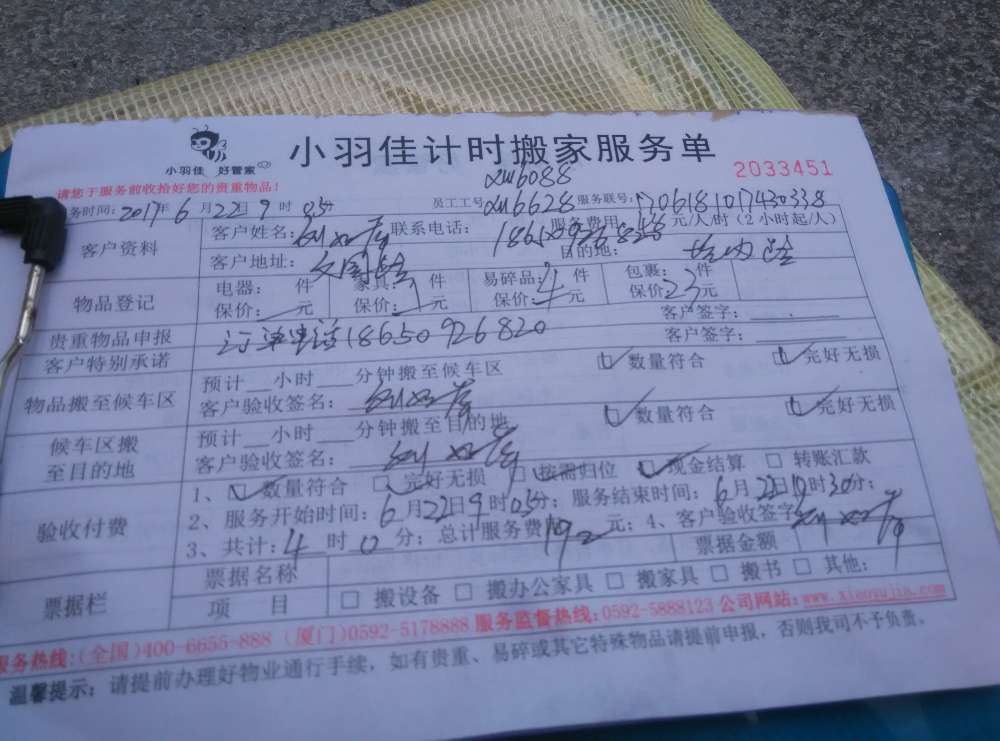 小羽佳 好管家
小羽佳计时搬家服务单
2033451
请您于服务前收拾好您的贵重物品!
XM6088
务时间: 2017年 6月 22日 9时 05
员工工号 XM6628 服务联号: 1706181017430338
客户资料
客户姓名: 联系电话: 服务费用 48 元/人/时 (2小时起/人)
客户地址: 文园路 目的地:
物品登记
电器: 件 家具: 件 易碎品: 4 件 包裹: 件
保价: 元 保价: 元 保价: 元 保价: 元
23
贵重物品申报 客户签字:
订单电话18650926820
客户特别承诺 客户签字:
物品搬至候车区
预计 小时 分钟搬至候车区 数量符合 完好无损
客户验收签名:
候车区搬至目的地
预计 小时 分钟搬至目的地 数量符合 完好无损
客户验收签名:
验收付费
1、 数量符合 完好无损 按需归位 现金结算 转账汇款
2、服务开始时间: 6月22日9时05分; 服务结束时间: 6月22日 时30分;
3、共计: 4 时 0 分; 总计服务费 192 元; 4、客户验收签字
票据栏
票据名称 票据金额
项 目 搬设备 搬办公家具 搬家具 搬书 其他:
服务热线:(全国)400-6655-888 (厦门)0592-5178888 服务监督热线:0592-5888123 公司网站:www.xiaoyujia.com
温馨提示: 请提前办理好物业通行手续, 如有贵重、易碎或其它特殊物品请提前申报, 否则我司不予负责。